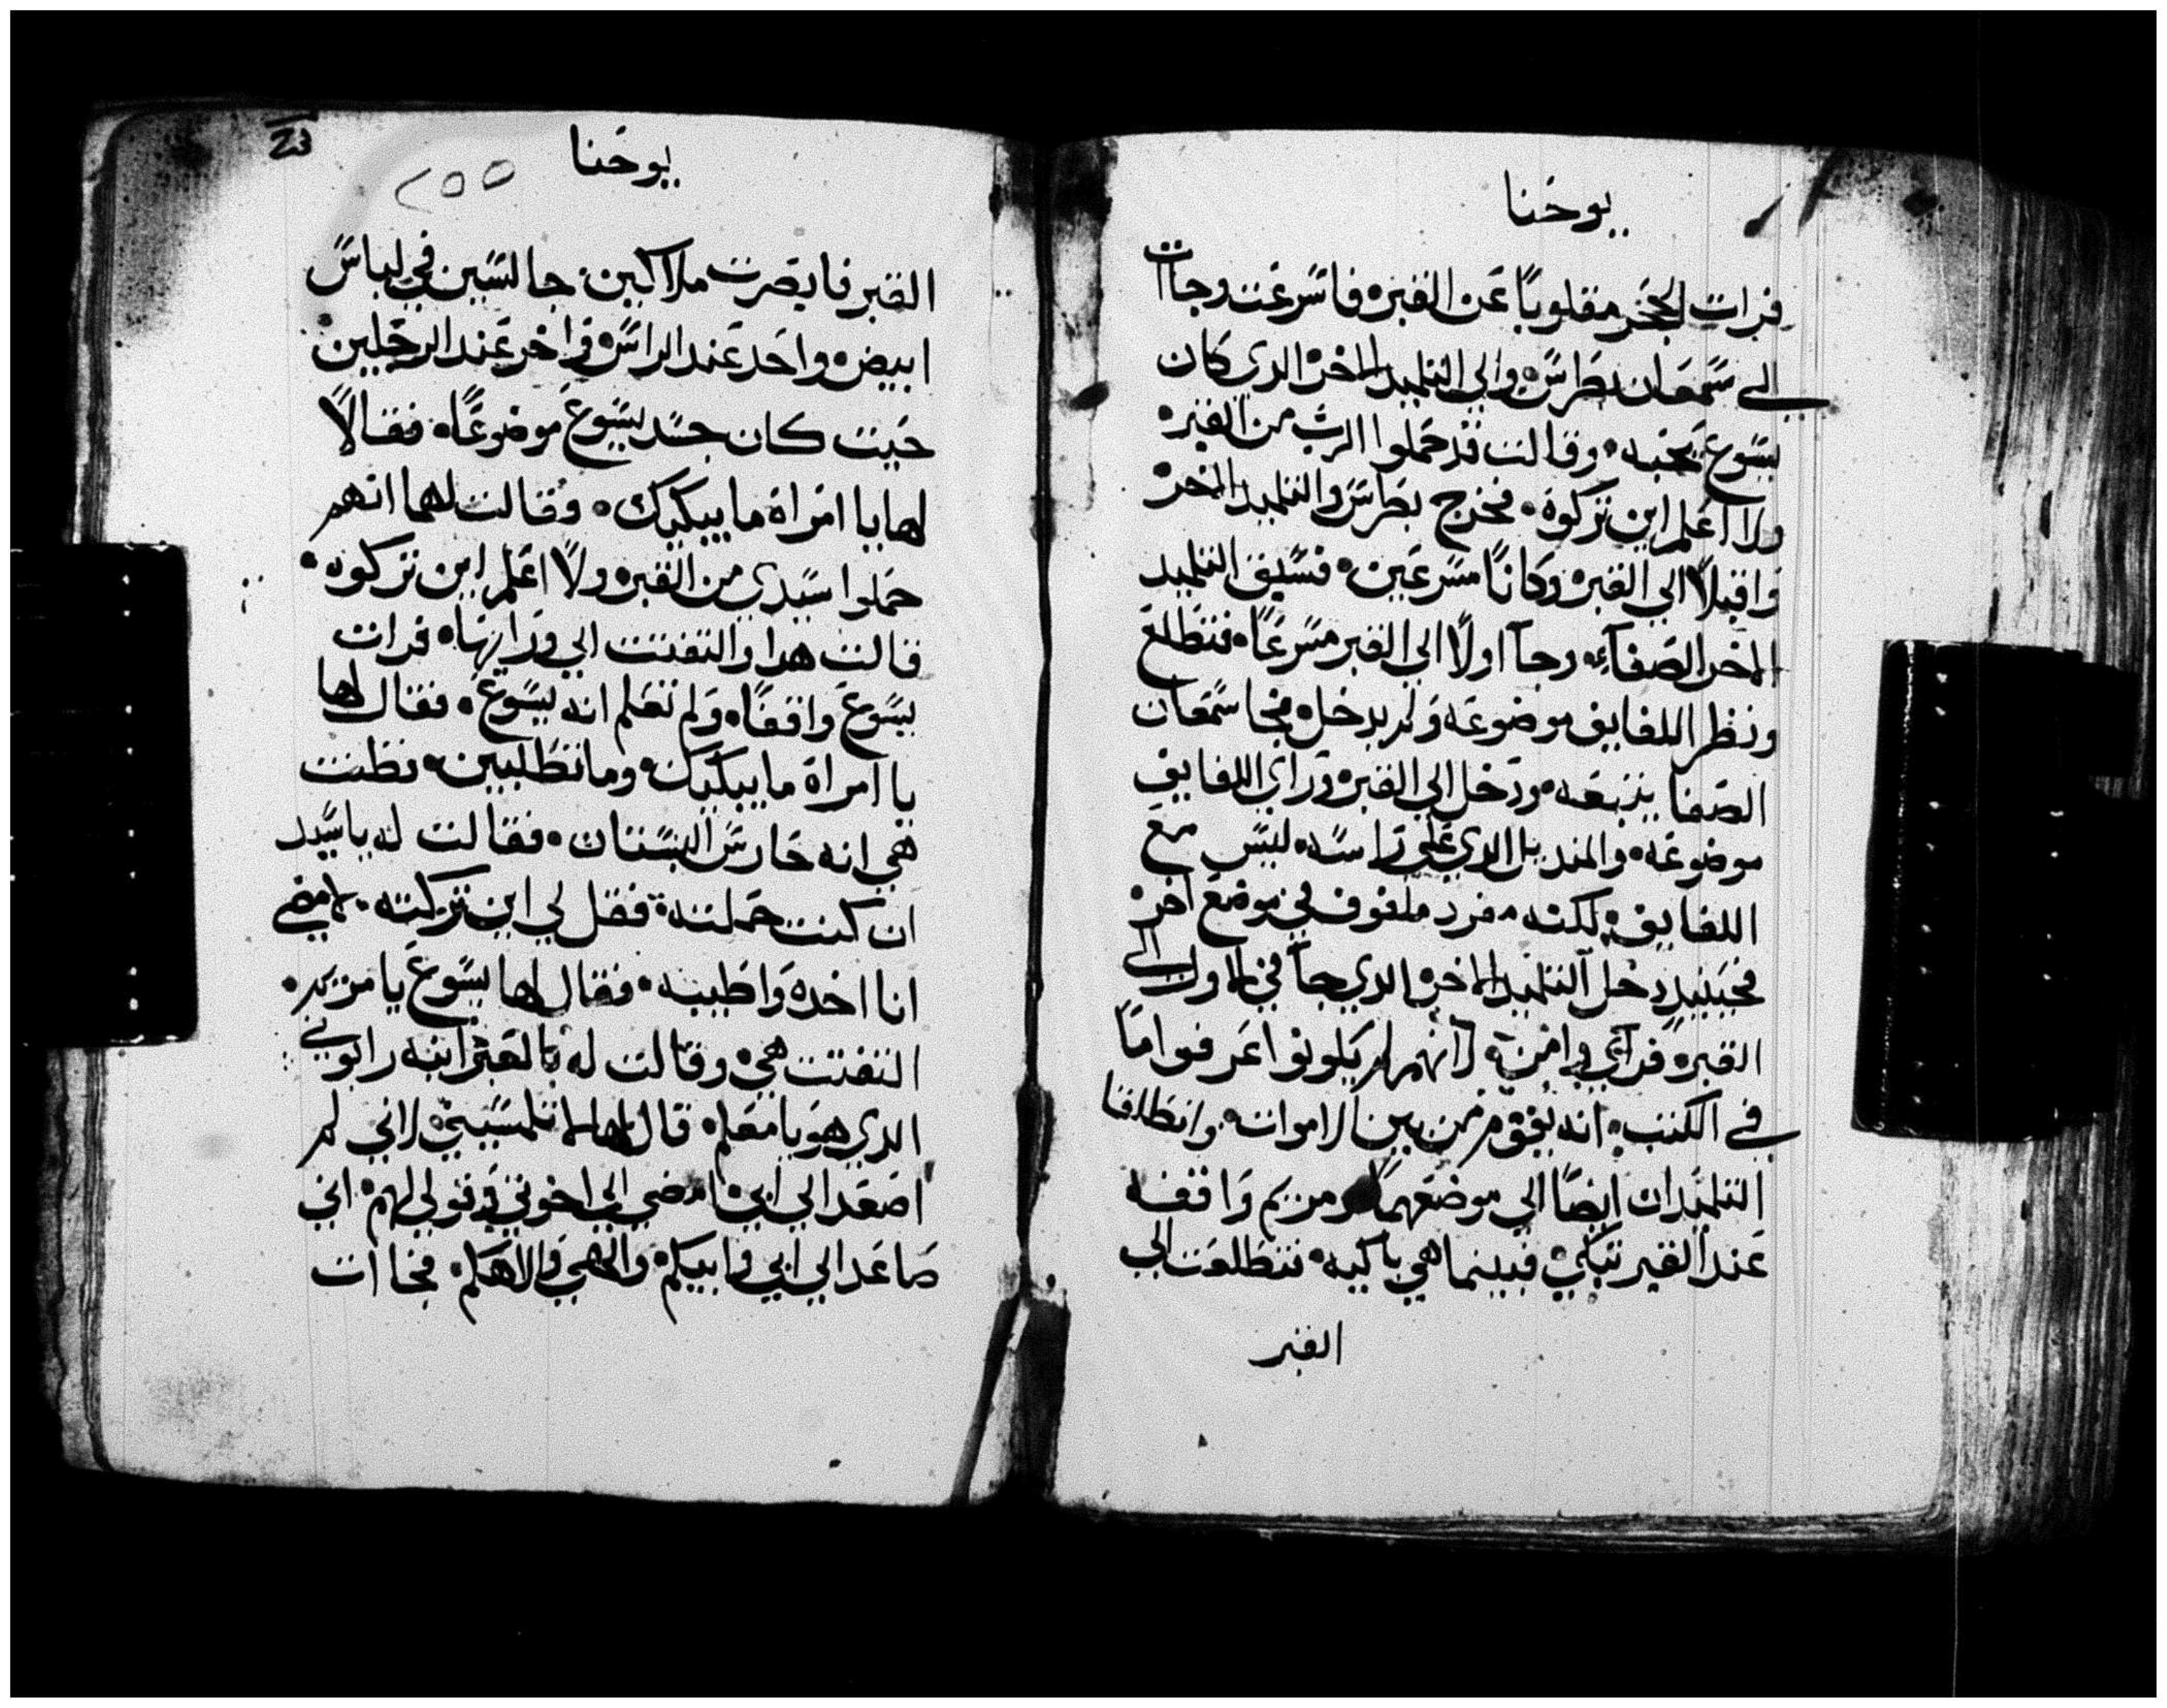 يوحنا
فرات الحجر مقلوبًا عن القبر؞ فاسرعت وجاات
الي سمعان بطرس؞ والي التلميد الاخر؞ الدي كان
يسوع يحبه؞ وقالت قد حملوا الرب من القبر؞
ولا اعلم اين تركوه؞ فخرج بطرس والتلميد الاخر؞
واقبلا الي القبر؞ وكانا مسرعين؞ فسبق التلميد
الاخر الصفاء؞ وجآ اولًا الي القبر مسرعًا؞ فتطلع
ونظر اللفايف موضوعه ولم يدخل؞ فجا سمعان
الصفا يتبعه؞ ودخل الي القبر؞ وراي اللفايف
موضوعه؞ والمنديل الدي علي راسه؞ ليس مع
اللفايف؞ لكنه مفرد ملفوف في موضع اخر؞
فحينيد دخل التلميد الاخر؞ الدي جآ في الاول الي
القبر؞ فراي وامن؞ لانهم لم يكونوا عرفوا مآ
في الكتب؞ انه يقوم من بين الاموات؞ وانطلقا
التلميدان ايضًا الي موضعهما؞ ومريم واقفه
عند القبر تبكي؞ فبينما هي باكيه؞ تتطلعت الي
القبر
يوحنا
٢٥٥
القبر فابصرت ملاكين؞ جالسين في لباس
ابيض؞ واحد عند الراس؞ واخر عند الرجلين
حيت كان جسد يسوع موضوعًا؞ فقالا
لها يا امراة ما يبكيك؞ وقالت لهما انهم
حملوا سيدي من القبر؞ ولا اعلم اين تركوه؞
قالت هدا والتفتت الي ورايها؞ فرات
يسوع واقفًا؞ ولم تعلم انه يسوع؞ فقال لها
يا امراة ما يبكيك؞ وما تطلبين؞ فظنت
هي انه حارس البستان؞ فقالت له يا سيد
ان كنت حملته؞ فقل لي اين تركته؞ لامضي
انا اخده واطيبه؞ فقال لها يسوع يا مريم؞
التفتت هي؞ وقالت له بالعبرانيه رابوني
الدي هو يا معلم؞ قال لها لا تلمسيني؞ لاني لم
اصعد الي ابي؞ امضي الي اخوتي؞ وقولي لهم؞ اني
صاعد الي ابي وابيكم؞ والهي والاهكم؞ فجاات